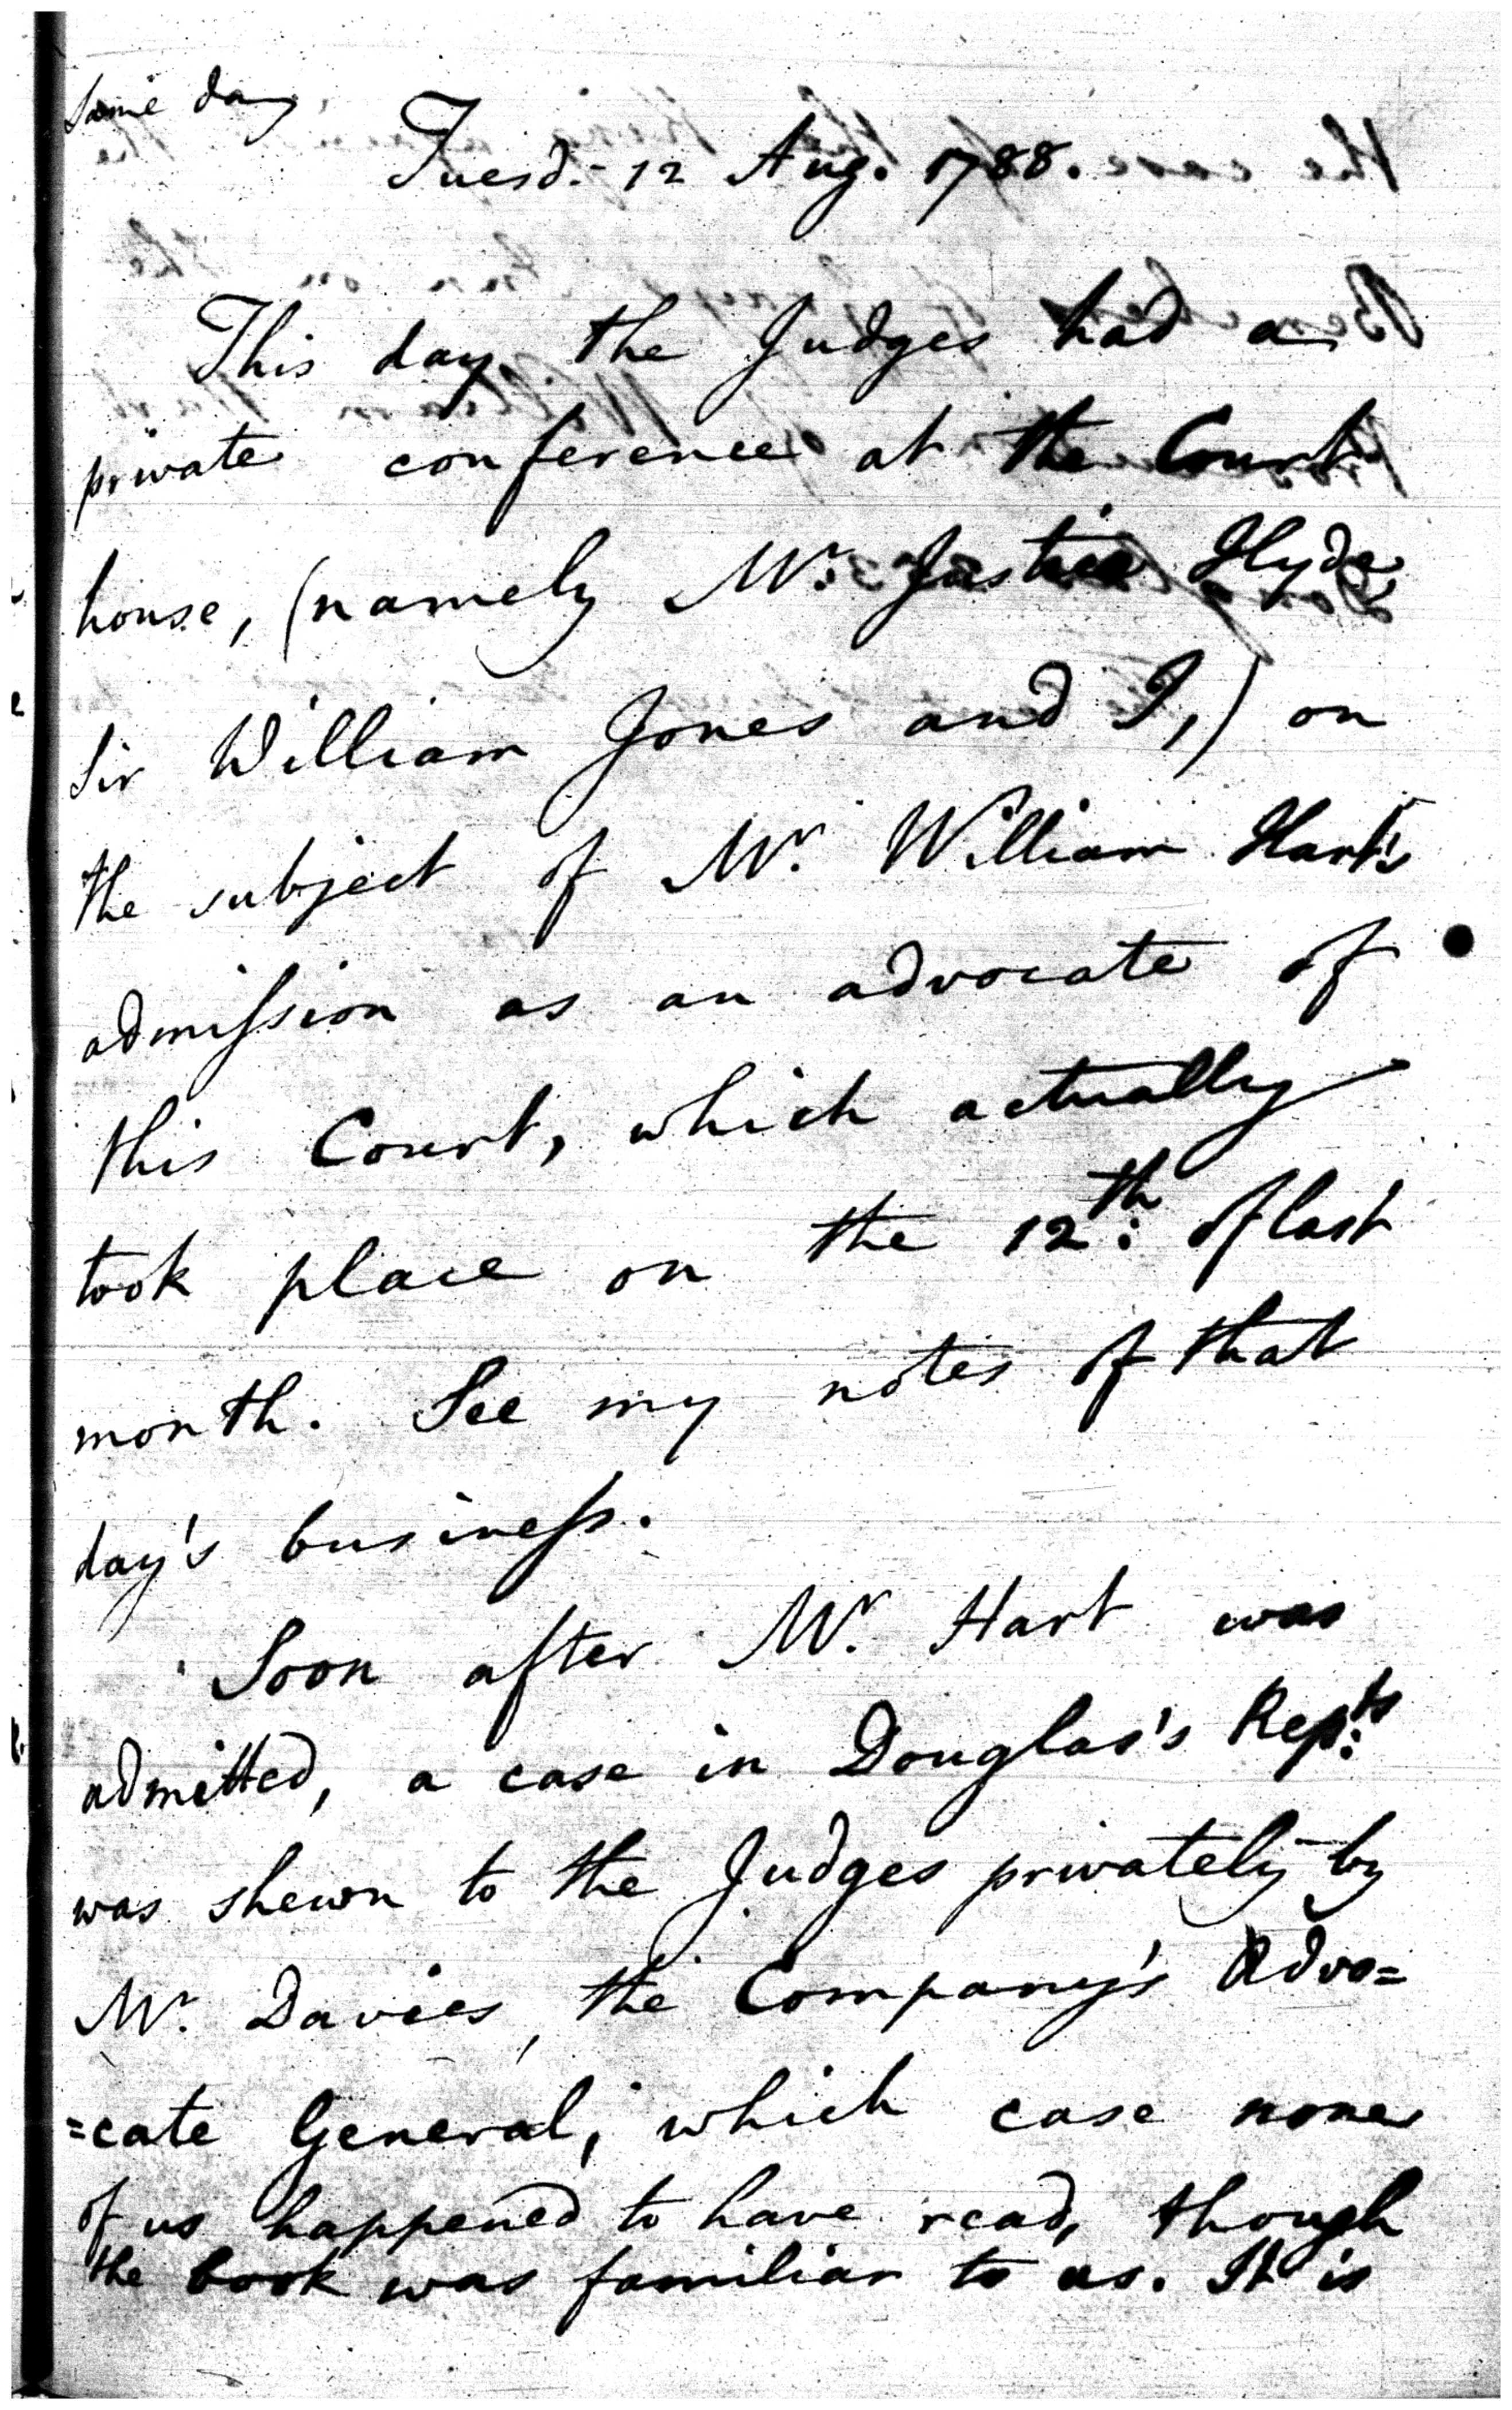 Same day
Tuesd:- 12 Aug. 1788.
This day the Judges had a
private conference at the Court
house, (namely Mr. Justice Hyde,
Sir William Jones and I,) on
the subject of Mr. William Hart's
admiſsion as an advocate of
this Court, which actually
took place on the 12th: of last
month. See my notes of that
day's busineſs.
Soon after Mr. Hart was
admitted, a case in Douglas's Repts:
was shewn to the Judges privately by
Mr. Davies, the Company's Advo=
=cate General, which case none
of us happened to have read, though
the book was familiar to us. It is